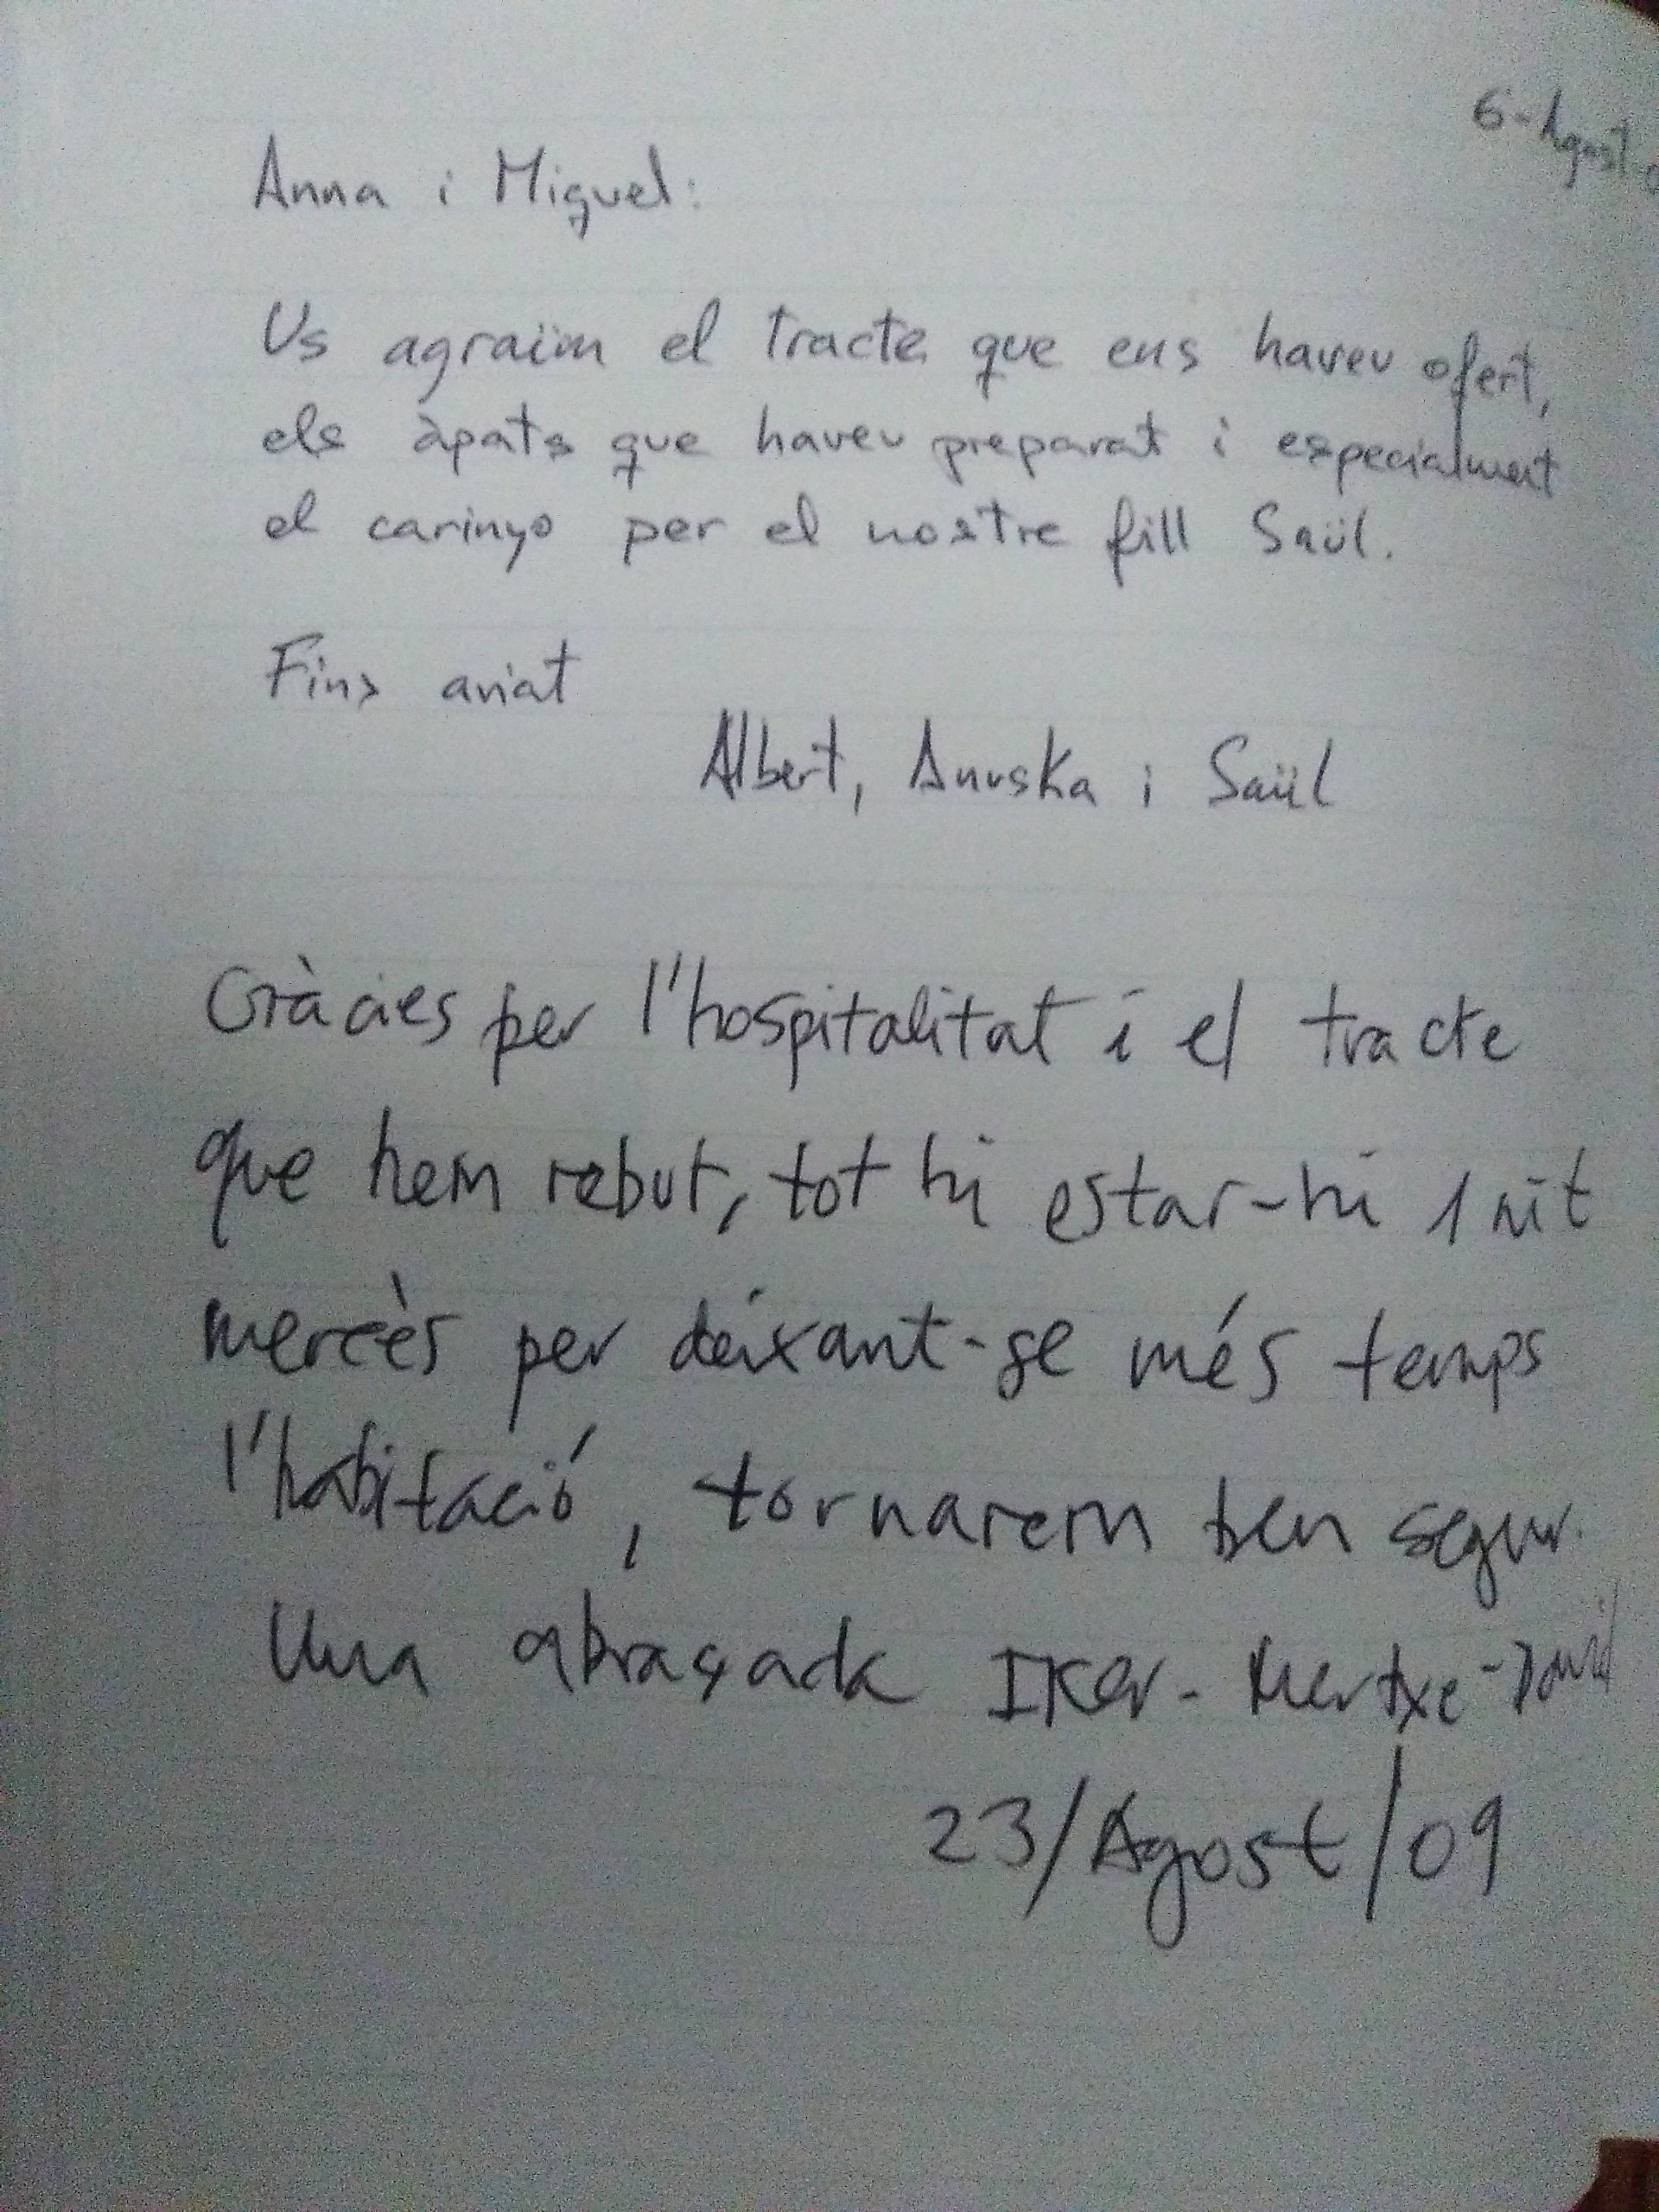 6-Agost-0
Anna i Miquel:
Us agraïm el tracte que ens haveu ofert,
els àpats que haveu preparat i especialment
el carinyo per el nostre fill Saül.
Fins aviat
Albert, Anuska i Saül
Gràcies per l'hospitalitat i el tracte
que hem rebut, tot hi estar-hi 1 nit
mercès per deixant-se més temps
l'habitació, tornarem ben segur.
Una abraçada Iker - Mertxe - David
23/Agost/09